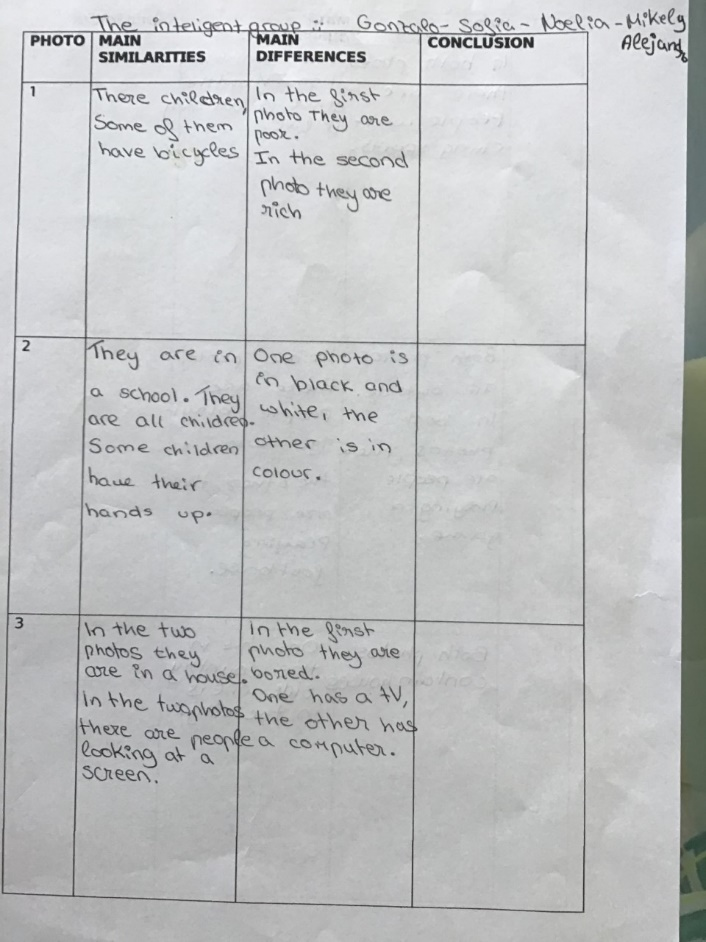 The inteligent group :: Gonzalo - Sofia - Noelia - Mikely
Alejandro
PHOTO
MAIN
SIMILARITIES
MAIN
DIFFERENCES
CONCLUSION
1
There children,
Some of them
have bicycles
In the first
photo They are
poor.
In the second
photo they are
rich
2
They are in
a school. They
are all children.
Some children
have their
hands up.
One photo is
in black and
white, the
other is in
colour.
3
In the two
photos they
are in a house.
In the two photos
there are people
looking at a
screen.
In the first
photo they are
bored.
One has a tV,
the other has
a computer.